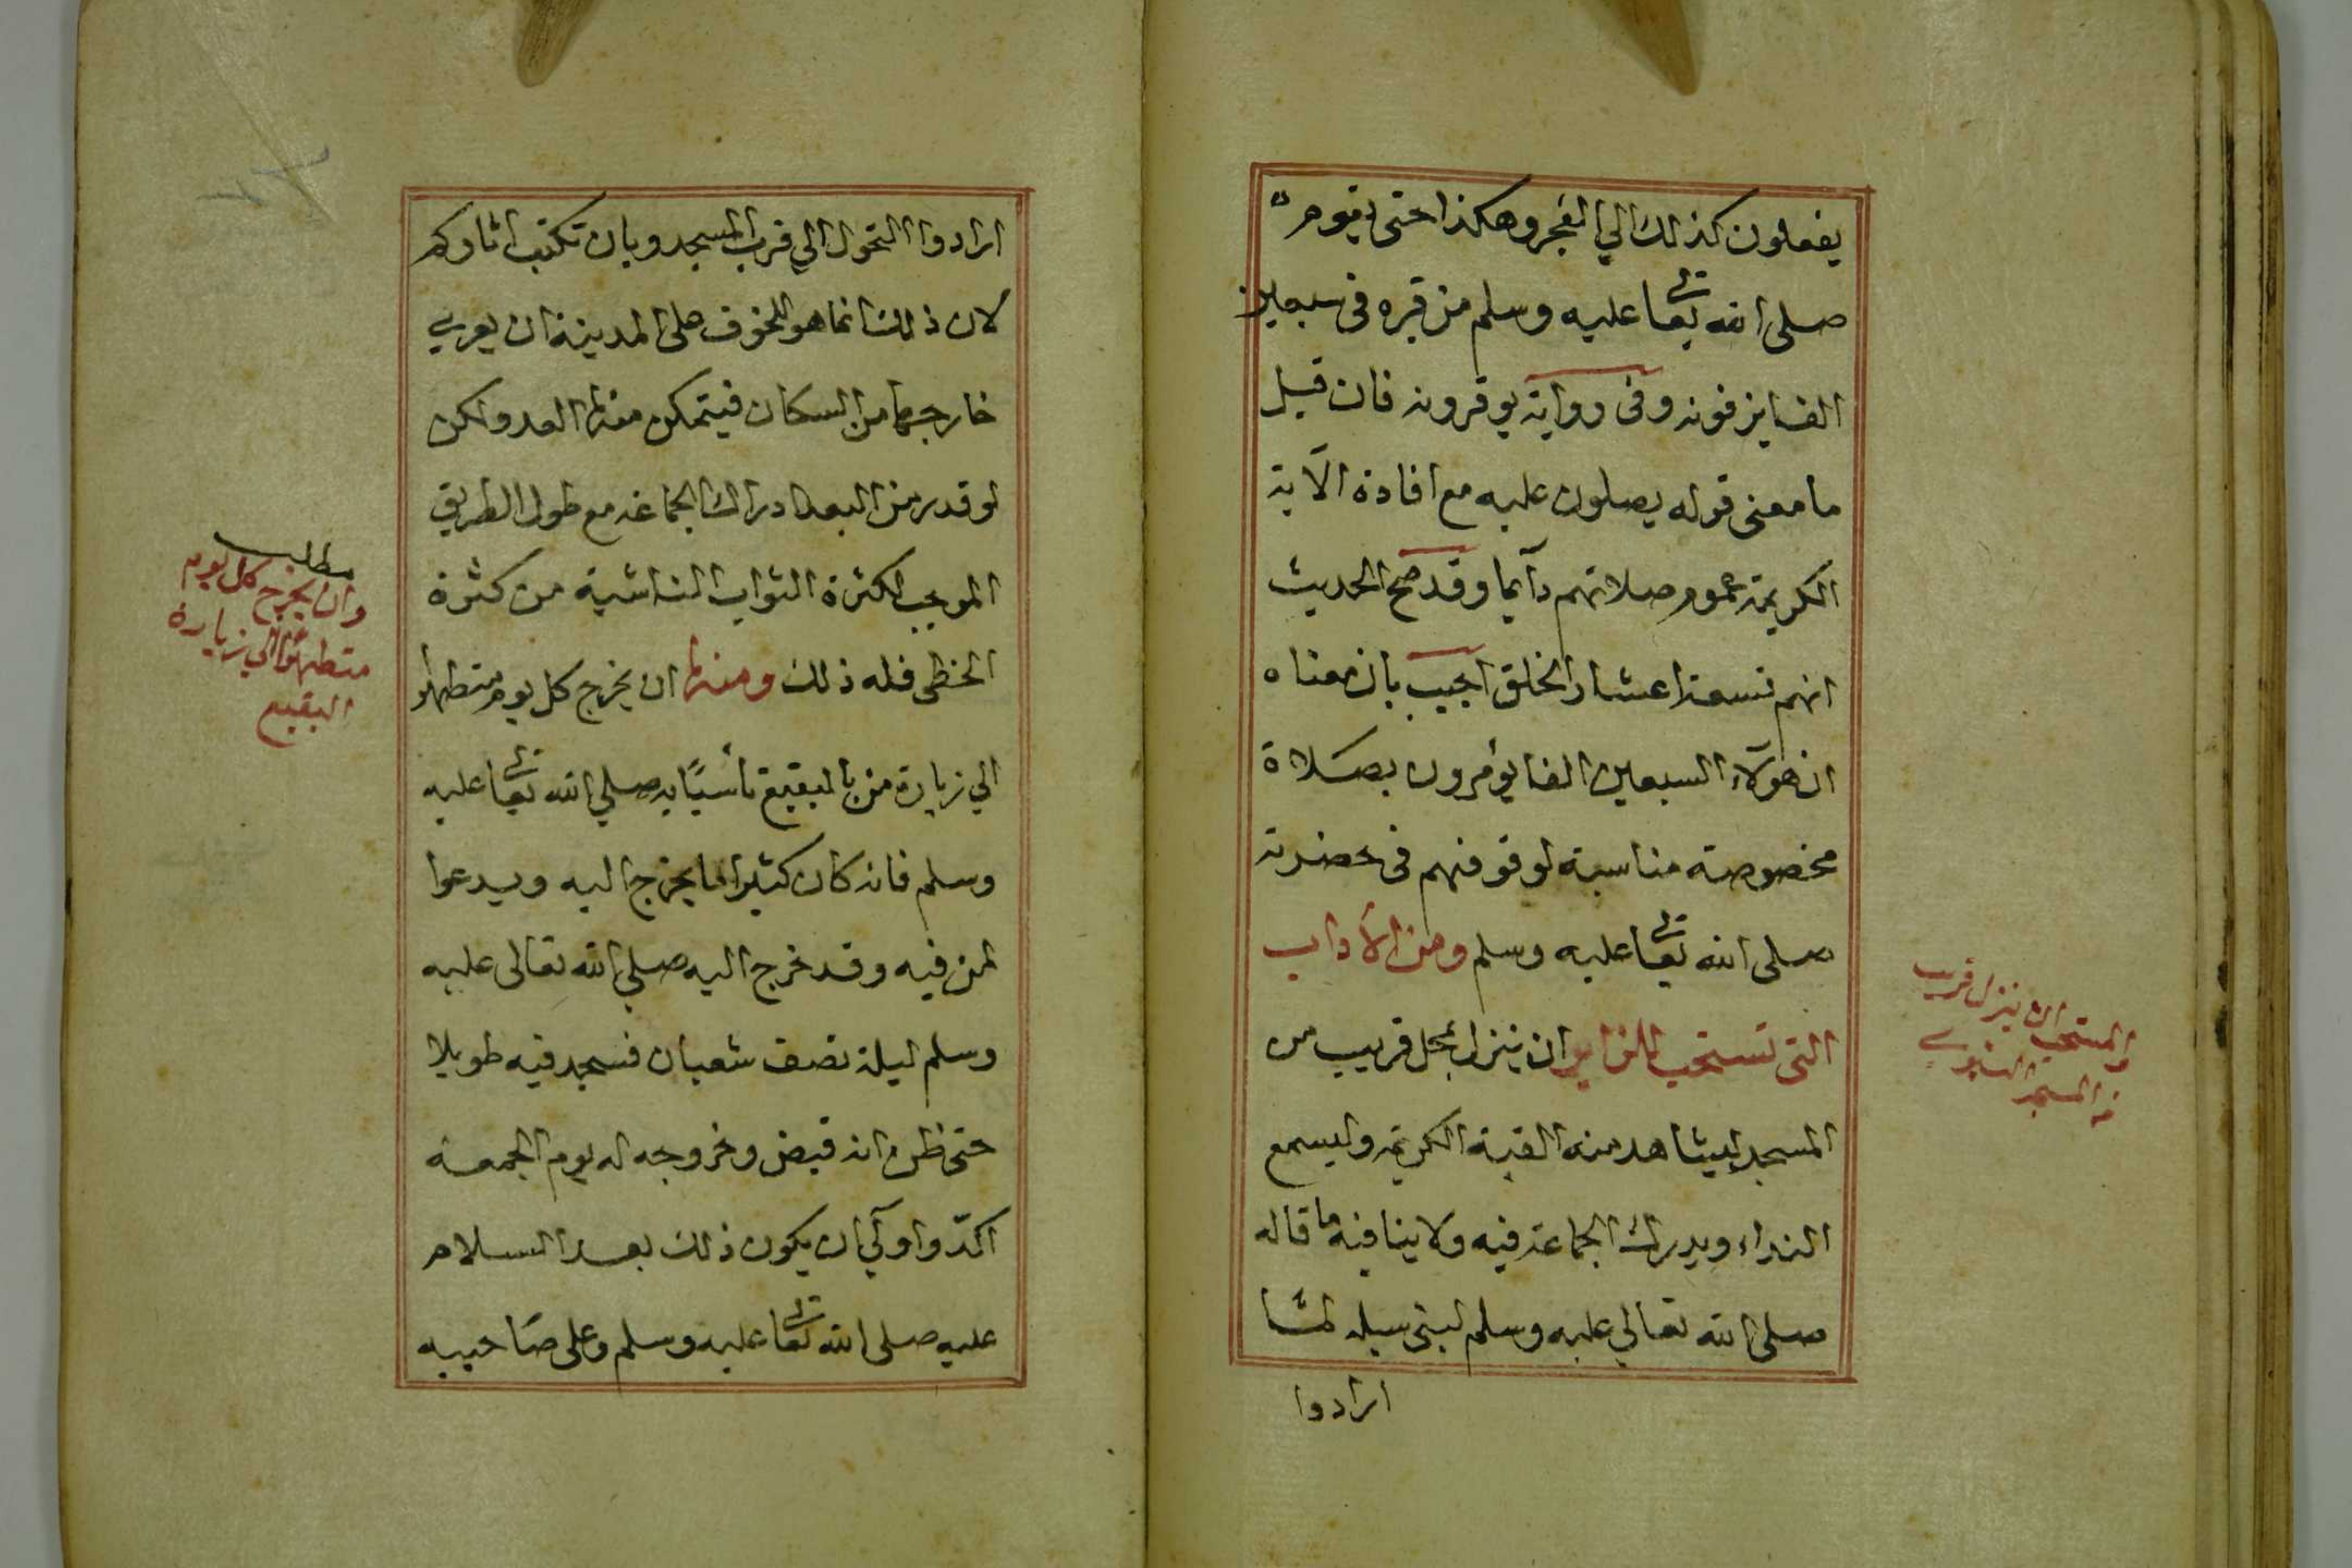 يفعلون كذلك الي الفجر وهكذا حتى يقوم
صلى الله تعالى عليه وسلم من قبره فى سبعين
الفا يزفونه وفى رواية يوقرونه فان قيل
ما معنى قوله يصلون عليه مع افادة الآية
الكريمة عموم صلاتهم دآيما وقد صح الحديث
انهم تسعة اعشار الخلق اجيب بان معناه
ان هؤلآء السبعين الفا يؤمرون بصلاة
مخصوصة مناسبة لوقوفهم فى حضرته
صلى الله تعالى عليه وسلم ومن الآداب
التى تستحب للزاير ان ينزل بمحل قريب من
المسجد ليشاهد منه القبة الكريمة وليسمع
النداء ويدرك الجماعة فيه ولا ينافيه ما قاله
صلى الله تعالي عليه وسلم لبنى سلمه لما
ارادوا
والمستحب ان ينزل قريب
من المسجد النبوي
ارادوا التحول الي قرب المسجد وبان تكتب اثاركم
لان ذلك انما هو للخوف على المدينة ان يعري
خارجها من السكان فيتمكن منها العدو لكن
لو قدر من البعد ادراك الجماعة مع طول الطريق
الموجب لكثرة الثواب الناشية من كثرة
الخطى فله ذلك ومنها ان يخرج كل يوم متطهرا
الي زيارة من بالبقيع تأسيًا به صلي الله تعالى عليه
وسلم فانه كان كثيرا ما يخرج اليه ويدعوا
لمن فيه وقد خرج اليه صلي الله تعالى عليه
وسلم ليلة نصف شعبان فسجد فيه طويلا
حتى ظن انه قبض وخروجه له يوم الجمعة
اكدّ واولي ان يكون ذلك بعد السلام
عليه صلى الله تعالى عليه وسلم وعلى صاحبيه
مطلب
وان يخرج كل يوم
متطهرا الي زيارة
البقيع